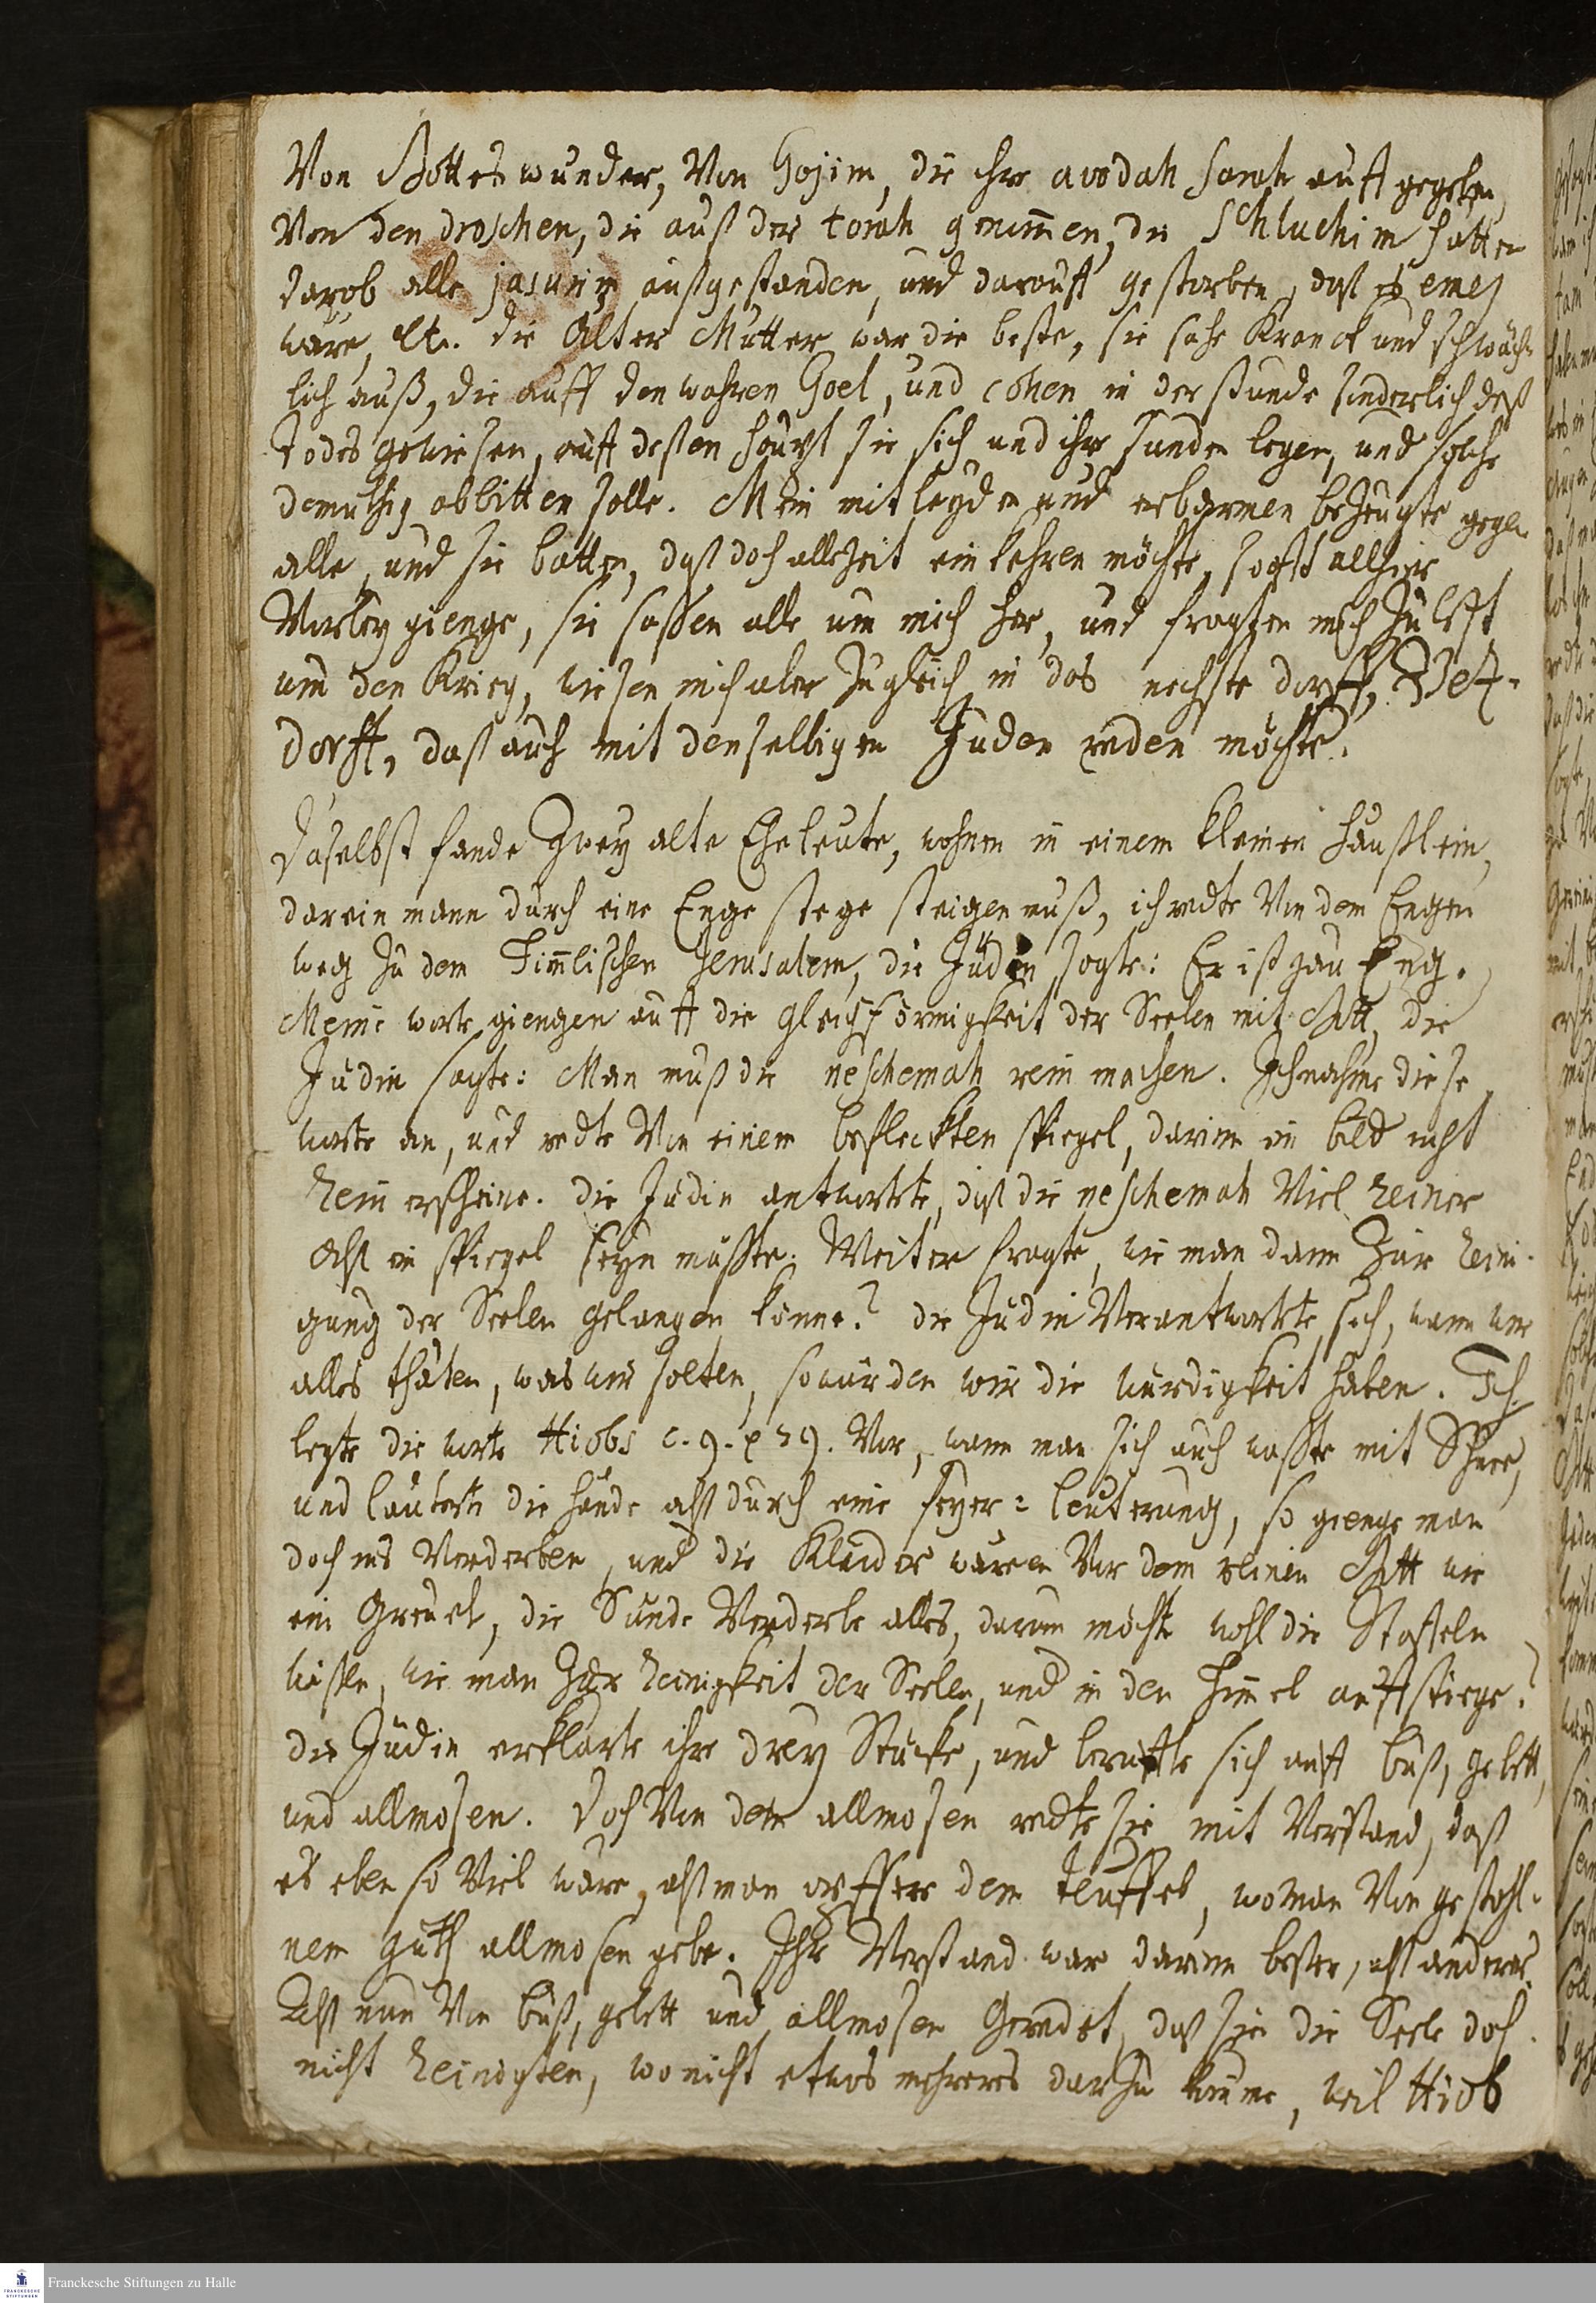 Von Gottes wunder, Von Gojim, die ihre avodah sarah auff gegeben,
Von den droschen, die auß der torah genommen, die Schluchim hatten
darob alle jasurim außgestanden, und darauff gestorben, daß es emes
wäre, etc. die Alter Mutter war die beste, sie sahe Kranck und schwäch-
lich auß, die auff den wahren Goel, und cohen in der stunde sonderlich deß
Todes gewiesen, auff deßen haupt sie sich und ihre sunden legen, und solche
demüthig abbitten solle. Mein mitleyden und erbarmen bezeugte gegen
alle, und sie batten, daß doch allezeit einkehren möchte, so offt allhier
Vorbey gienge, sie saßen alle um mich her, und fragten mich zu letzt
um den Krieg, wiesen mich aber zugleich in das nechste dorff,
dorff, daß auch mit denselbigen Juden reden möchte.
Daselbst fande Zwey alte Eheleute, wohnen in einem kleinen häußlein,
darein mann durch eine Enge stege steigen muß, ich redte Von dem Engen
weg zu dem Himmlischen Jerusalem, die Jüdin sagte: Er ist gar Eng.
Meine worte giengen auff die gleichförmigkeit der Seelen mit Gott, die
Jüdin sagte: Man muß die neschemah rein machen. Ich nahme diese
worte an, und redte Von einem befleckten spiegel, darinn ein bild nicht
rein erscheine. die Jüdin antwortete, daß die neschemah Viel reiner
alß ein spiegel seyn müßte. Weiter fragte, wie man dann zur reini-
gung der Seelen gelangen könne? die Jüdin Verantwortete sich, wann wir
alles thäten, was wir solten, so würden wir die würdigkeit haben. Ich
legte die worte Hiobs c. 9. Vor, wann man sich auch waschte mit Schnee,
und läuterte die hände alß durch eine feyer-leuterung, so gienge man
doch ins Verderben, und die Kleider wären Vor dem reinen Gott wie
ein Greuel, die Sünde Verderbe alles, darum möchte wohl die Staffeln
wissen, wie man zur reinigkeit der Seelen, und in den Himmel auffstiege?
die Jüdin erklärte ihre drey Stücke, und beruffte sich auff buß, gebett,
und allmosen. Doch Von dem allmosen redte sie mit Verstand, daß
es eben so Viel wäre, alß man opffere dem teuffel, wo man Von gestohl-
nem guth allmosen gebe. Ihr Verstand war darinn beßer, alß anderer.
Alß nun Von buß, gebett und allmosen Geredet, daß sie die Seele doch
nicht reinigten, wo nicht etwas mehreres darzu käme, weil Hiob
Franckesche Stiftungen zu Halle